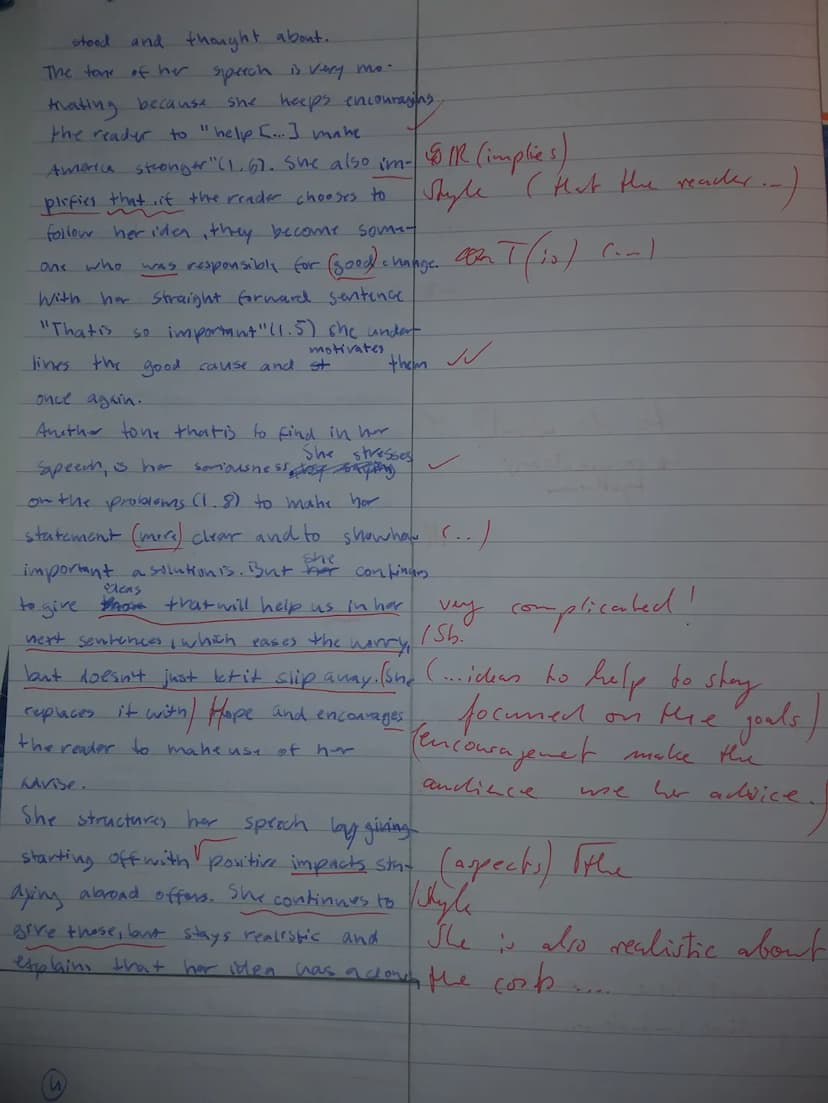 stood and thought about.
The tone of her speech is very mo-
tivating because she keeps encouraging
the reader to "help [...] make
America stronger" (l. 6). She also im- (implies)
plifies that if the reader chooses to Style (that the reader ...)
follow her idea, they become some-
one who was responsible for (good) change. T (is) (...)
With her straight forward sentence
"That is so important" (l. 5) she under-
motivates
lines the good cause and them
once again.
Another tone that is to find in her
She stresses
speech, is her seriousness.
on the problems (l. 8) to make her
statement (more) clear and to show how (...)
she
important a solution is. But continues
ideas
to give that will help us in her very complicated!
next sentences, which eases the worry, /Sb.
but doesn't just let it slip away. (She (... ideas to help to stay
replaces it with) Hope and encourages focused on the goals)
the reader to make use of her (encouragemet make the
advise. audience use her advice.)
She structures her speech by giving
starting off with √ positive impacts stu- (aspects) √the
dying abroad offers. She continues to /Style
give those, but stays realistic and She is also realistic about
explains that her idea has a the costs ....
4